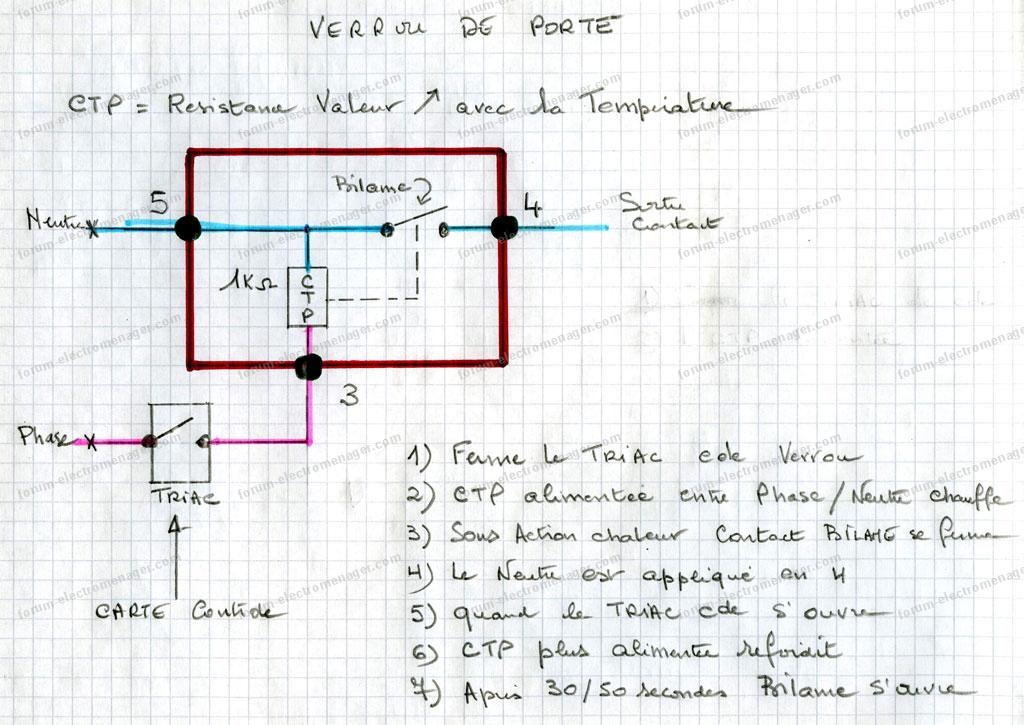 VERROU DE PORTE
CTP = Resistance Valeur ↗ avec la Température
Bilame
5
4
Neutre
Sortie
Contact
1KΩ
CTP
3
Phase
TRIAC
CARTE Contrôle
1) Ferme le TRIAC cde Verrou
2) CTP alimentée entre Phase/Neutre chauffe
3) Sous Action chaleur Contact BILAME se ferme
4) Le Neutre est appliqué en 4
5) Quand le TRIAC cde s'ouvre
6) CTP plus alimentée refoidit
7) Après 30/50 secondes Bilame s'ouvre
forum-electromenager.com